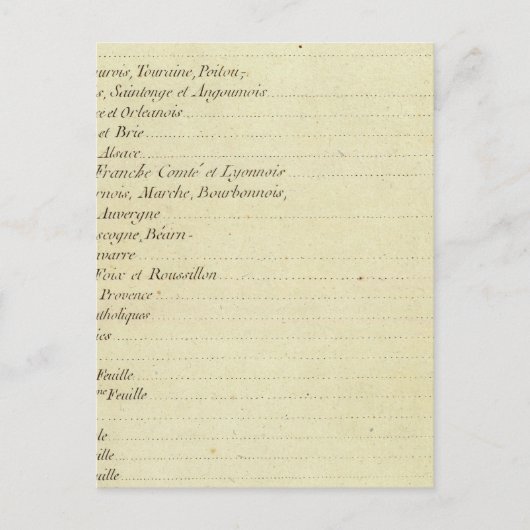 ourois, Touraine, Poitou,
s, Saintonge et Angoumois
ce et Orleanois
et Brie
Alsace
Franche Comté et Lyonnois
rnois, Marche, Bourbonnois,
Auvergne
scogne, Béarn-
avarre
Foix et Roussillon
Provence
atholiques
ies
Feuille
me Feuille
le
ille
uille